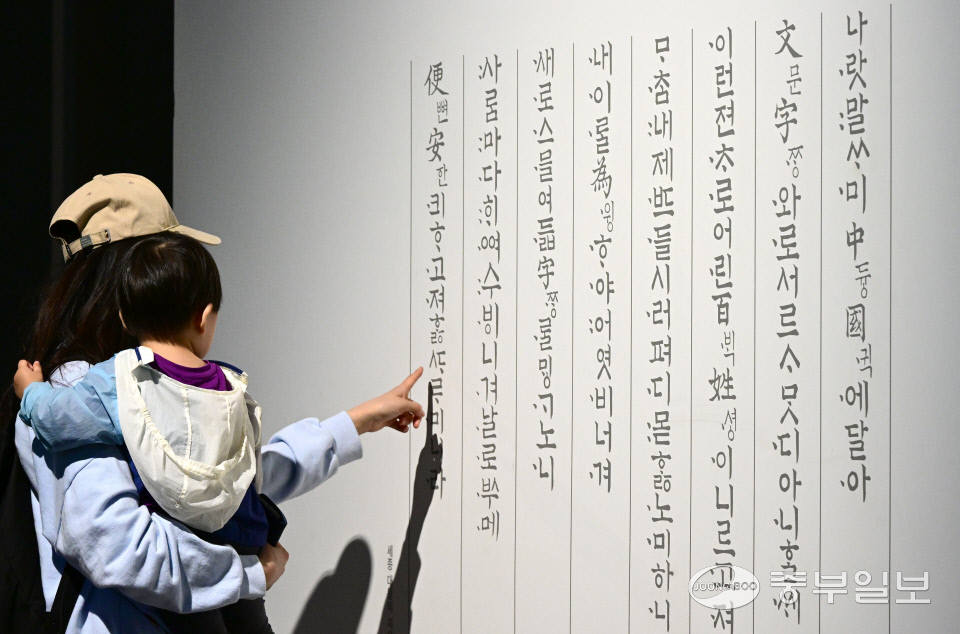 나랏말ᄊᆞ미中듕國귁에달아
文문字ᄍᆞᆼ와로서르ᄉᆞᄆᆞᆺ디아니ᄒᆞᆯᄊᆡ
이런젼ᄎᆞ로어린百ᄇᆡᆨ姓셩이니르고져
ᄆᆞᄎᆞᆷ내제ᄠᅳ들시러펴디몯ᄒᆞᇙ노미하니
내이ᄅᆞᆯ為윙ᄒᆞ야어엿비너겨
새로스믈여듧字ᄍᆞᆼᄅᆞᆯᄆᆡᇰᄀᆞ노니
사ᄅᆞᆷ마다ᄒᆡᅇᅧ수ᄫᅵ니겨날로ᄡᅮ메
便뼌安ᅙᅡᆫ킈ᄒᆞ고져ᄒᆞᇙᄯᆞᄅᆞ미니라
세종
JOONGBOO 중부일보